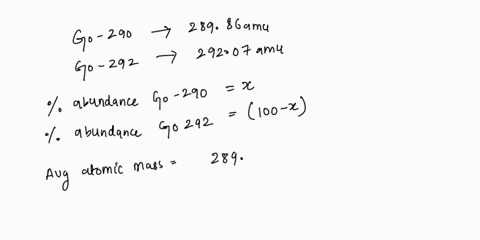 Go-290 → 289.86 amu
Go-292 → 292.07 amu
% abundance Go-290 = x
% abundance Go 292 = (100-x)
Avg atomic mass = 289.